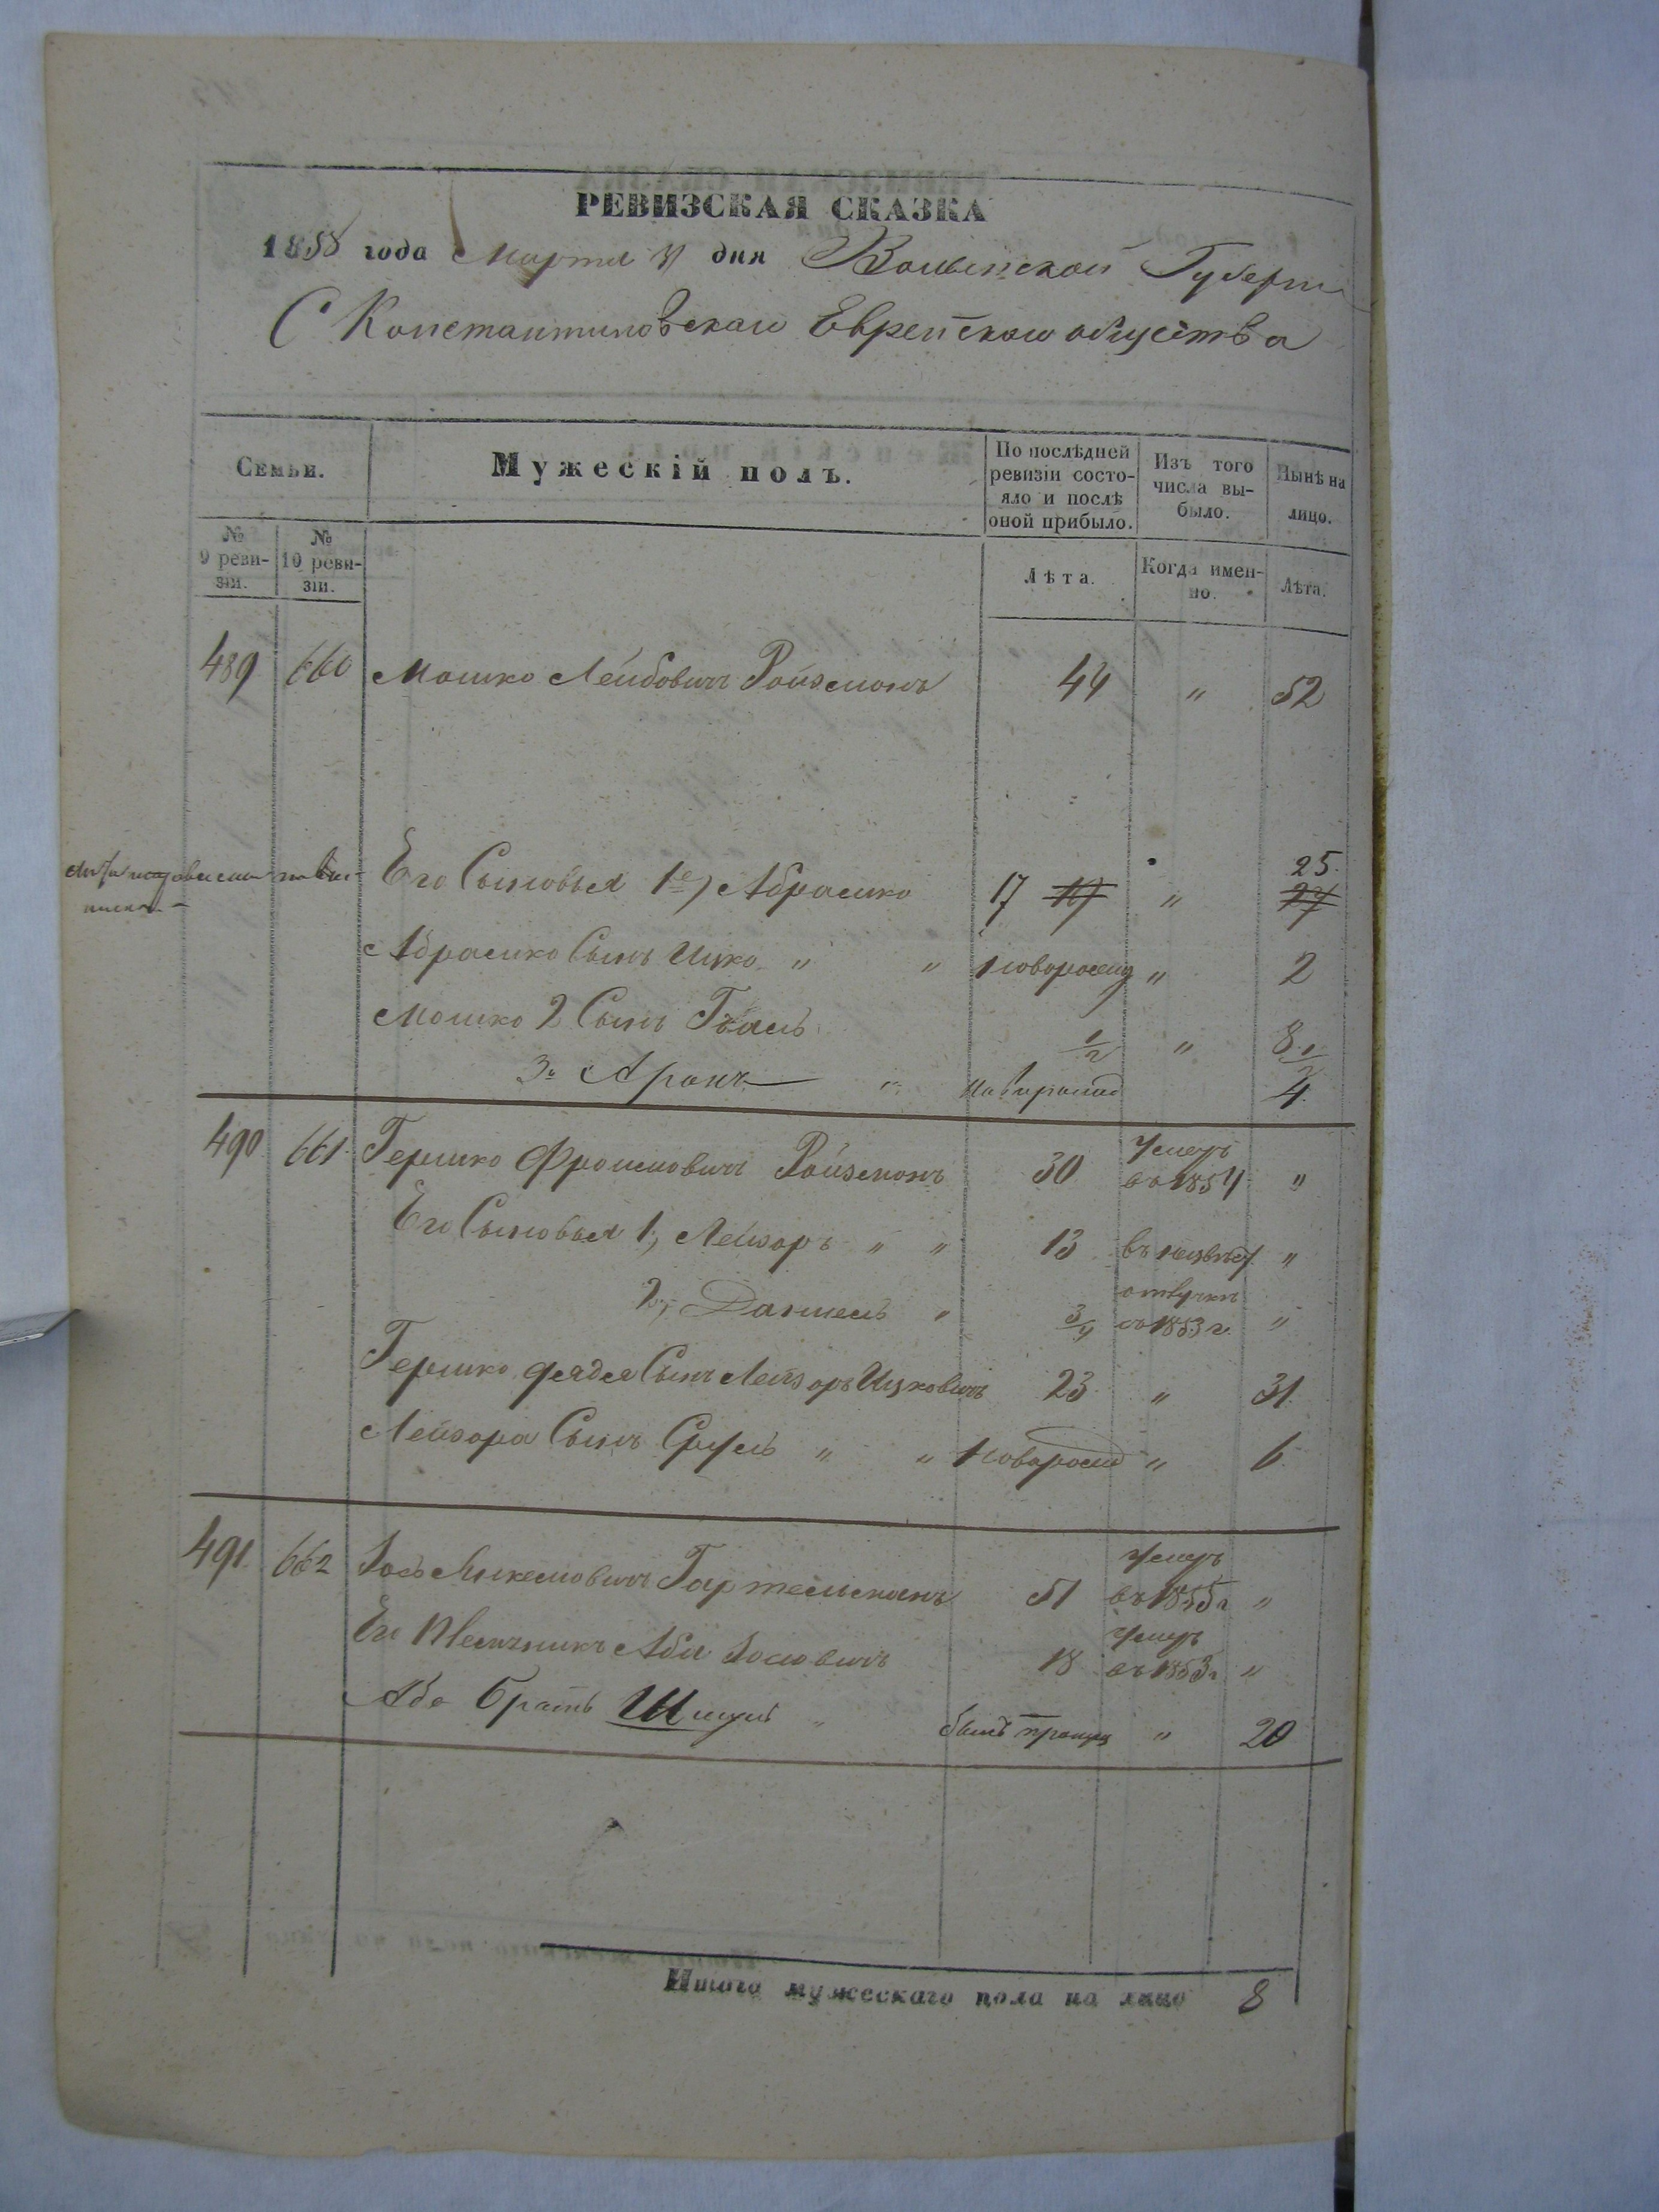 РЕВИЗСКАЯ СКАЗКА
1858 года Марта дня Волынской Губерни
С Константиновскаго Еврейскаго общества
Семьи. Мужескій полъ. По послѣдней ревизіи состояло и послѣ оной прибыло. Изъ того числа выбыло. Нынѣ на лицо.
№ 9 ревизіи. № 10 ревизіи. Лѣта. Когда именно. Лѣта.
489 660 Мошко Лейбовичъ Ройзманъ 44 " 52
25.
Его Сыновья 1е) Абрамко 17 19 " 27
Абрамко Сынъ Ицко " " новорожд " 2
Мошко 2 Сынъ 1/2 " 8 1/2
3й Аронъ " новорожд 4.
490 661 Гершко Фроимовичъ Ройзманъ 30 Умеръ въ 1854 "
Его Сыновья 1, Лейзоръ " " 13 въ "
2, Даниель " 3/4 отлучк въ 1853 г. "
Гершко дядя Сынъ Лейзоръ Ицковичъ 23 " 31.
Лейзора Сынъ Сруль " " новорожд " 6
491. 662 Іось Гартельманъ 51 Умеръ въ 1855 г "
Его Племянникъ Аба Іосіовичъ 18 Умеръ въ 1853 г "
Аба Братъ Шмуль " былъ " 20
Итого мужескаго пола на лицо 8